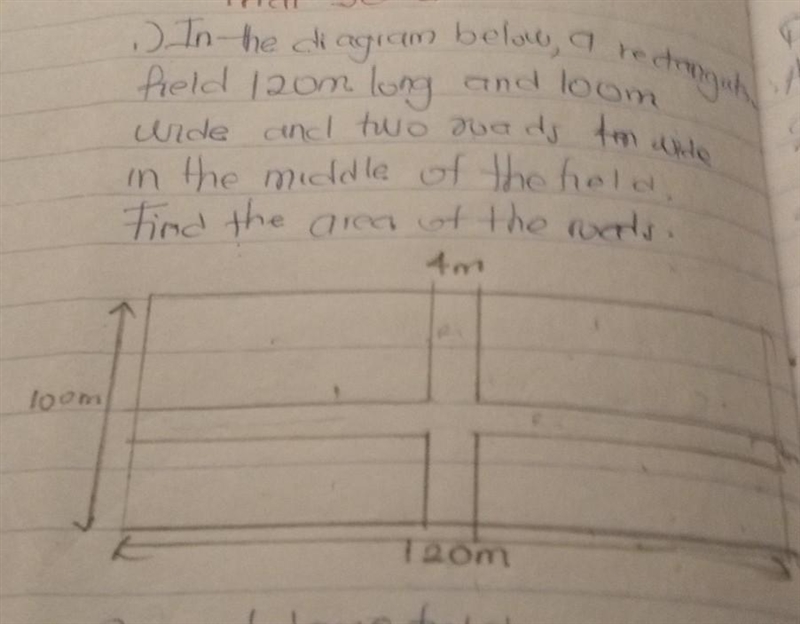 1.) In the diagram below, a rectangular
field 120m long and 100m
wide and two roads 4m wide
in the middle of the field.
Find the area of the roads.
4m
100m
120m